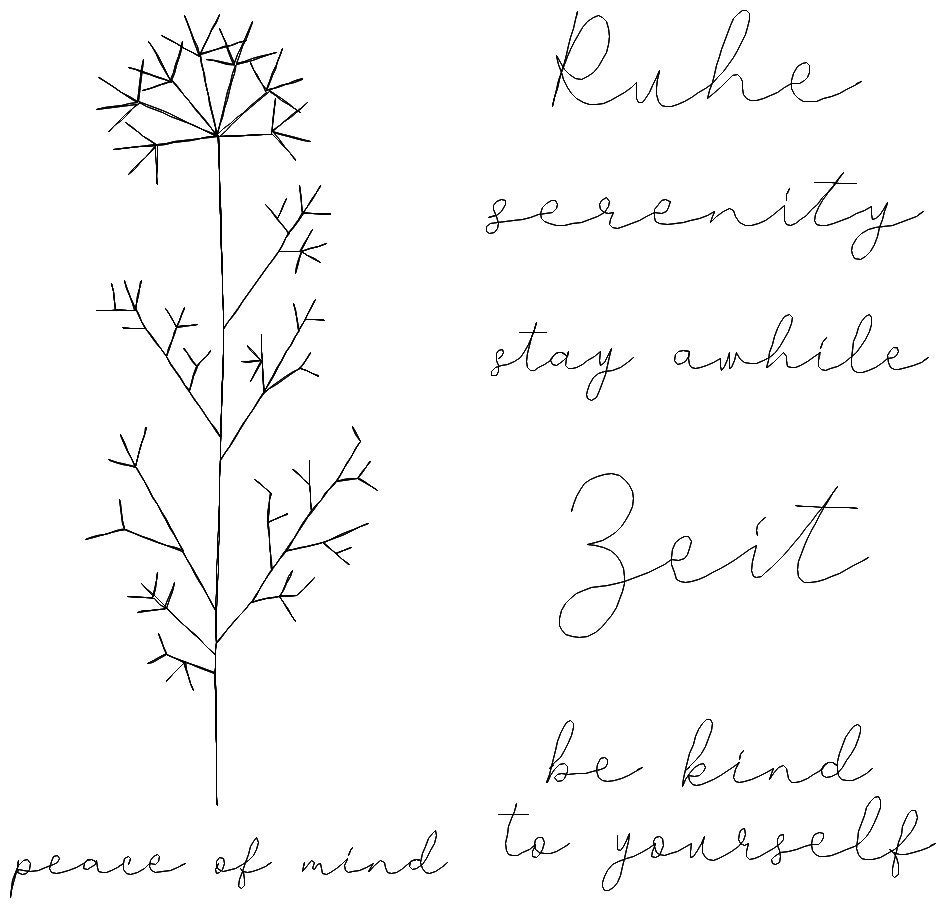 Ruhe
serenity
stay awhile
Zeit
be kind
to yourself
peace of mind